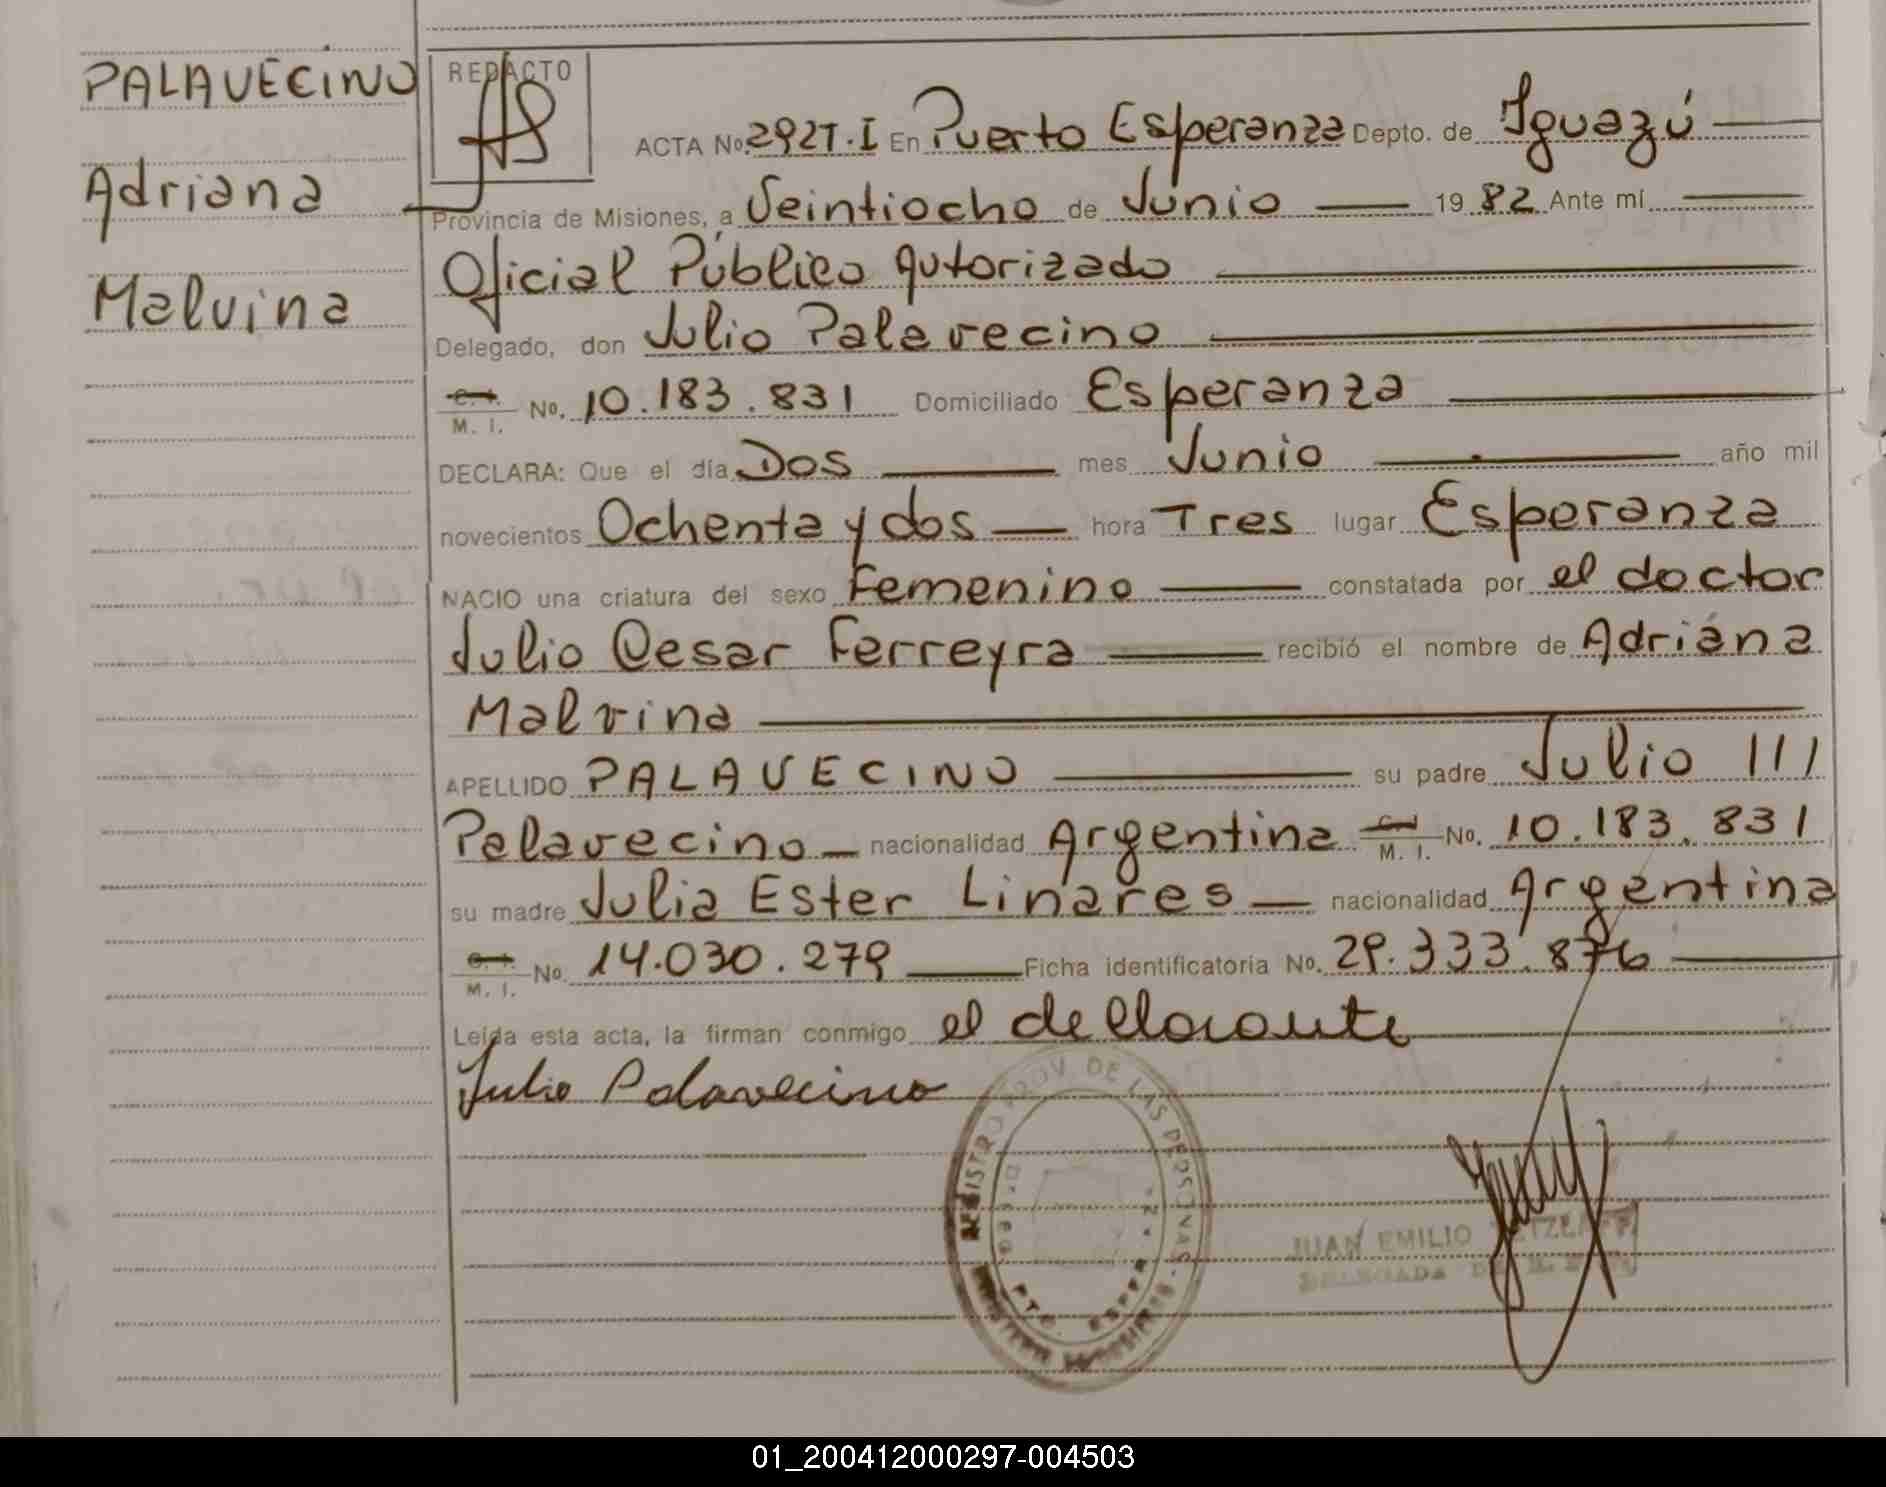 PALAVECINO
Adriana
Malvina
REDACTO
ACTA No. 292T.I En Puerto Esperanza Depto. de Iguazú
Provincia de Misiones, a Veintiocho de Junio 19 82 Ante mí
Oficial Público Autorizado
Delegado, don Julio Palavecino
C. I. M. I. No. 10.183.831 Domiciliado Esperanza
DECLARA: Que el día Dos mes Junio año mil
novecientos Ochenta y dos hora Tres lugar Esperanza
NACIO una criatura del sexo Femenino constatada por el doctor
Julio Cesar Ferreyra recibió el nombre de Adriana
Malvina
APELLIDO PALAVECINO su padre Julio
Palavecino nacionalidad Argentina C. I. M. I. No. 10.183.831
su madre Julia Ester Linares nacionalidad Argentina
C. I. M. I. No. 14.030.279 Ficha identificatoria No. 29.333.876
Leída esta acta, la firman conmigo el declarante
Julio Palavecino
REGISTRO PROV. DE LAS PERSONAS
PTO. ESPER
JUAN EMILIO
01_200412000297-004503